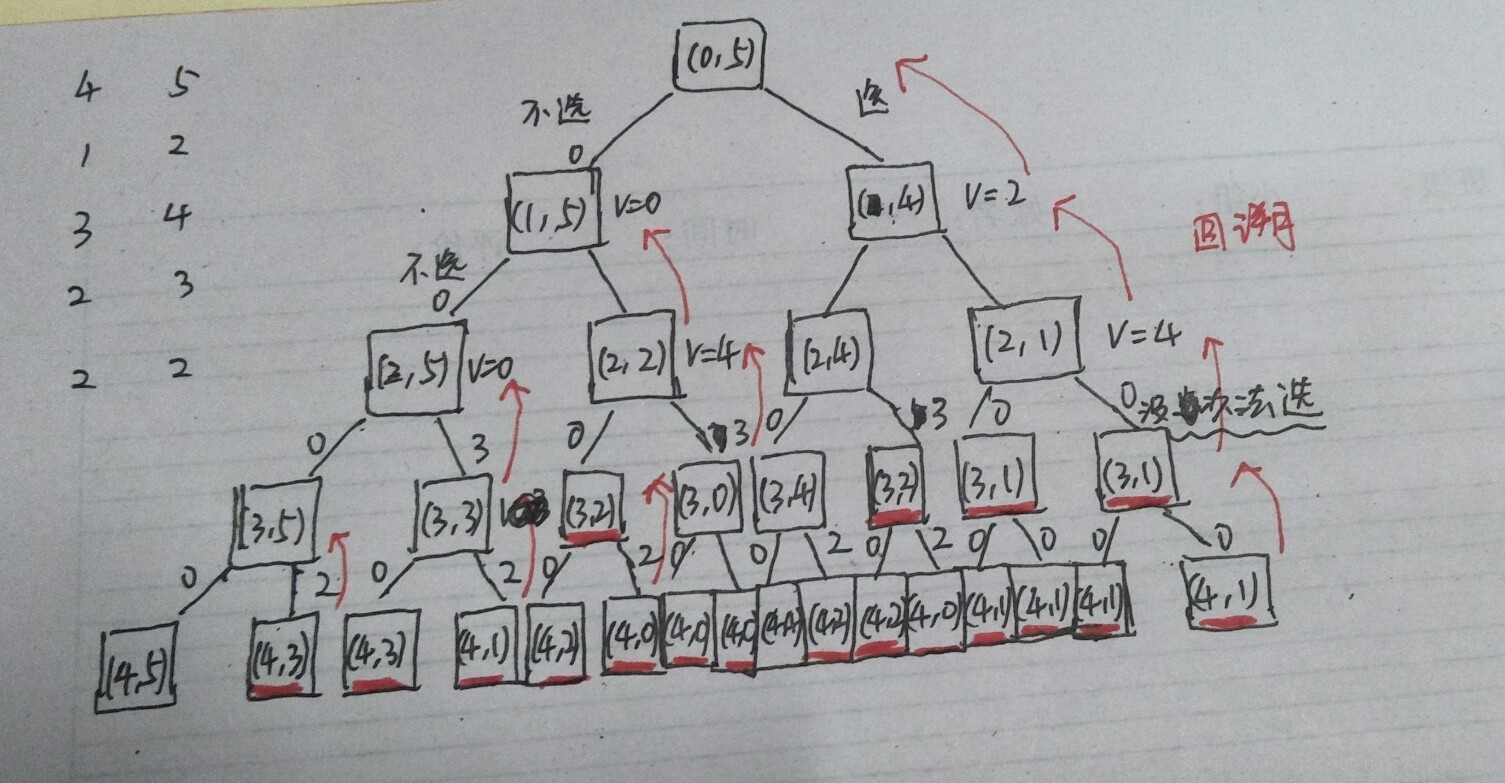 4 5
1 2
3 4
2 3
2 2
(0,5)
不选 选
0
(1,5) V=0 (1,4) V=2
回溯
不选
0
(2,5) V=0 (2,2) V=4 (2,4) (2,1) V=4
0 3 0 3 0 3 0 0 没办法选
(3,5) (3,3) (3,2) (3,0) (3,4) (3,2) (3,1) (3,1)
0 2 0 2 0 2 0 0 2 0 2 0 0 0 0
(4,5) (4,3) (4,3) (4,1) (4,2) (4,0) (4,0) (4,0) (4,4) (4,2) (4,2) (4,0) (4,1) (4,1) (4,1) (4,1)